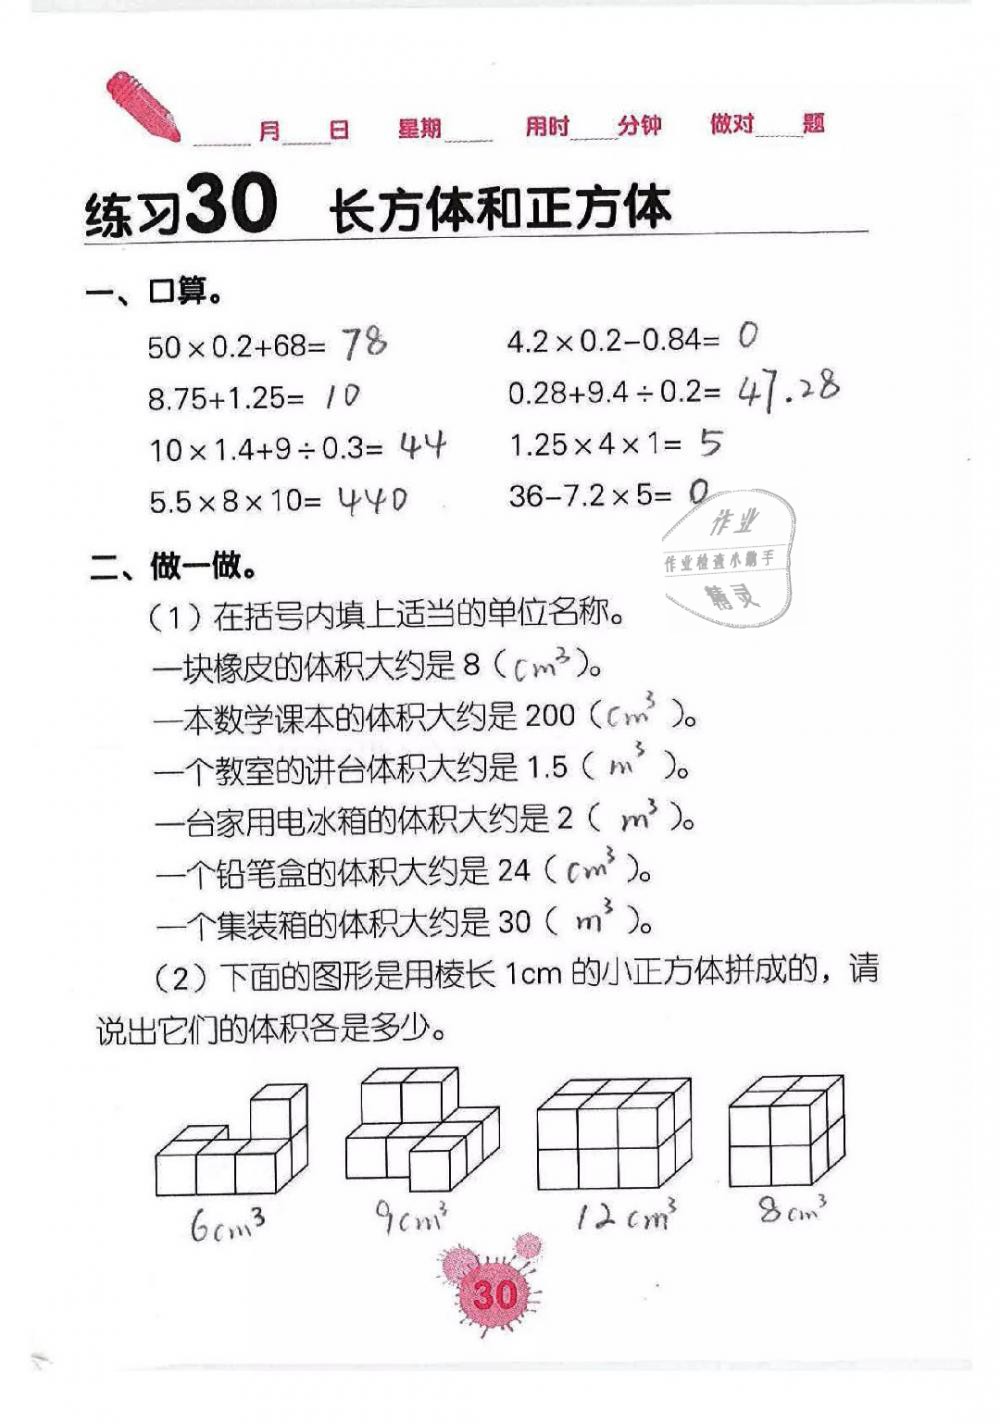 月 日 星期 用时 分钟 做对 题
练习30 长方体和正方体
一、口算。
50×0.2+68= 78 4.2×0.2-0.84= 0
8.75+1.25= 10 0.28+9.4÷0.2= 47.28
10×1.4+9÷0.3= 44 1.25×4×1= 5
5.5×8×10= 440 36-7.2×5= 0
作业
作业检查小助手
精灵
二、做一做。
(1)在括号内填上适当的单位名称。
一块橡皮的体积大约是8(cm³)。
一本数学课本的体积大约是200(cm³)。
一个教室的讲台体积大约是1.5(m³)。
一台家用电冰箱的体积大约是2(m³)。
一个铅笔盒的体积大约是24(cm³)。
一个集装箱的体积大约是30(m³)。
(2)下面的图形是用棱长1cm的小正方体拼成的，请
说出它们的体积各是多少。
6cm³ 9cm³ 12cm³ 8cm³
30